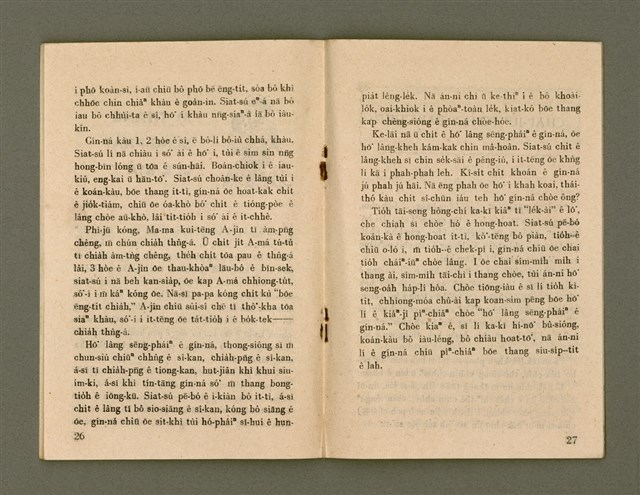 i phō koán-sì, i-aū chiū bô phō bē èng-tit, sòa bô khì
chhōe chin chiàⁿ khàu ê goân-in. Siat-sú eⁿ-á nā bô
iau bô chhùi-ta ê sî, hō͘ i khàu n̄ng-siaⁿ-á iā bô iàu-
kín.
Gín-ná kàu 1, 2 hòe ê sî, ē bô-lí bô-iû chhá, khàu.
Siat-sú lí nā chiàu i só͘ ài ê hō͘ i, túi ê sim sin nn̄g
hong-bīn lóng ū tōa ê sún-hāi. Boán-chiok i ê iau-
kiû, eng-kai ū hān-tō͘. Siat-sú choân-ke ê lâng túi i
ê koán-kàu, bōe thang it-tì, gín-ná ōe hoat-kak chit
ê jio̍k-tiám, chiū ōe óa-khò bó͘ chit ê tióng-pòe ê
lâng chòe aū-khò, lâi tit-tio̍h i só͘ ài ê it-chhè.
Phì-jū kóng, Ma-ma kui-tēng A-jîn tī àm-pn̄g
chêng, m̄ chún chia̍h thn̂g-á. Ū chi̍t ji̍t A-má tú-tú
tī chia̍h àm-tǹg chêng, the̍h chi̍t tòa pau ê thn̂g-á
lâi, 3 hòe ê A-jîn ōe thau-khòaⁿ lāu-bó ê bīn-sek,
siat-sú i nā beh kan-sia̍p, ōe kap A-má chhiong-tu̍t,
só͘-í i m̄ káⁿ kóng ōe. Nā-sī pa-pa kóng chit kù "bōe
èng-tit chia̍h," A-jîn chiū sûi-sî chē tī thô͘-kha tōa
siaⁿ khàu, só͘-í i it-tēng ōe ta̍t-tio̍h i ê bo̍k-tek——
chia̍h thn̂g-á.
Hó͘ lâng sēng-pháiⁿ ê gín-ná, thong-siông sī m̄
chun-siú chiūⁿ chhn̂g ê sî-kan, chia̍h-pn̄g ê sî-kan,
á-sī tī chia̍h-pn̄g ê tiong-kan, hut-jiân khì khui siu-
im-ki, á-sī khì tín-tāng gín-ná só͘ m̄ thang bong-
tio̍h ê iōng-kū. Siat-sú pē-bó ê ì-kiàn bô it-tì, á-sī
chi̍t ê lâng tī bô sio-siāng ê sî-kan, kóng bô siāng ê
ōe, gín-ná chiū ōe sit-khì túi hó-pháiⁿ sī-hui ê hun-
26
pia̍t lêng-le̍k. Nā án-ni chi ū ke-thiⁿ i ê bô khoài-
lo̍k, oai-khiok i ê phòaⁿ-toàn le̍k, kiat-kó bōe thang
kap chèng-siông ê gín-ná chòe-hóe.
Ke-lāi nā ū chit ê hō͘ lâng sēng-pháiⁿ ê gín-ná, ōe
hō͘ lâng-kheh kám-kak chin mâ-hoân. Siat-sú chit ê
lâng-kheh sī chin sek-sāi ê pêng-iú, i it-tēng ōe khúg
lí kā i phah-phah leh. Kî-si̍t chit khoán ê gín-ná
jú phah jú hāi. Nā êng phah ōe hō͘ i khah koai, thái-
thó kàu chit sî-chūn iàu teh hō͘ gín-ná chòe ông?
Tio̍h tāi-seng hông-chí ka-kī kiâⁿ tī "le̍k-ài" ê lō͘,
che chiah sī chòe hó ê hong-hoat. Siat-sú pē-bó
koán-kà ê hong-hoat it-tì, kò͘-tēng bô piàn, tio̍h-ê
chiū o-ló i, m̄ tio̍h-ê chek-pī i, gín-ná chiū ōe chai
tio̍h cháiⁿ-iūⁿ chòe lâng. I ōe chai sím-mi̍h mi̍h i
thang ài, sím-mi̍h tāi-chì i thang chòe, túi án-ni hō͘
seng-oa̍h ha̍p-lí hòa. Chòe tiōng-iàu ê sī lí tio̍h kì-
tit, chhiong-móa chû-ài kap koan-sim pēng bōe hō͘
lí ê kiáⁿ-jî piⁿ-chiâⁿ chòe "hō͘ lâng sēng-pháiⁿ ê
gín-ná." Chòe kiáⁿ ê, sī lí ka-kī hí-nō͘ bû-siông,
koán-kàu bô iàu-léng, bô chiàu hoat-tō͘, nā án-ni
lí ê gín-ná chiū pìⁿ-chiâⁿ bōe thang siu-si̍p-tit
ê lah.
27